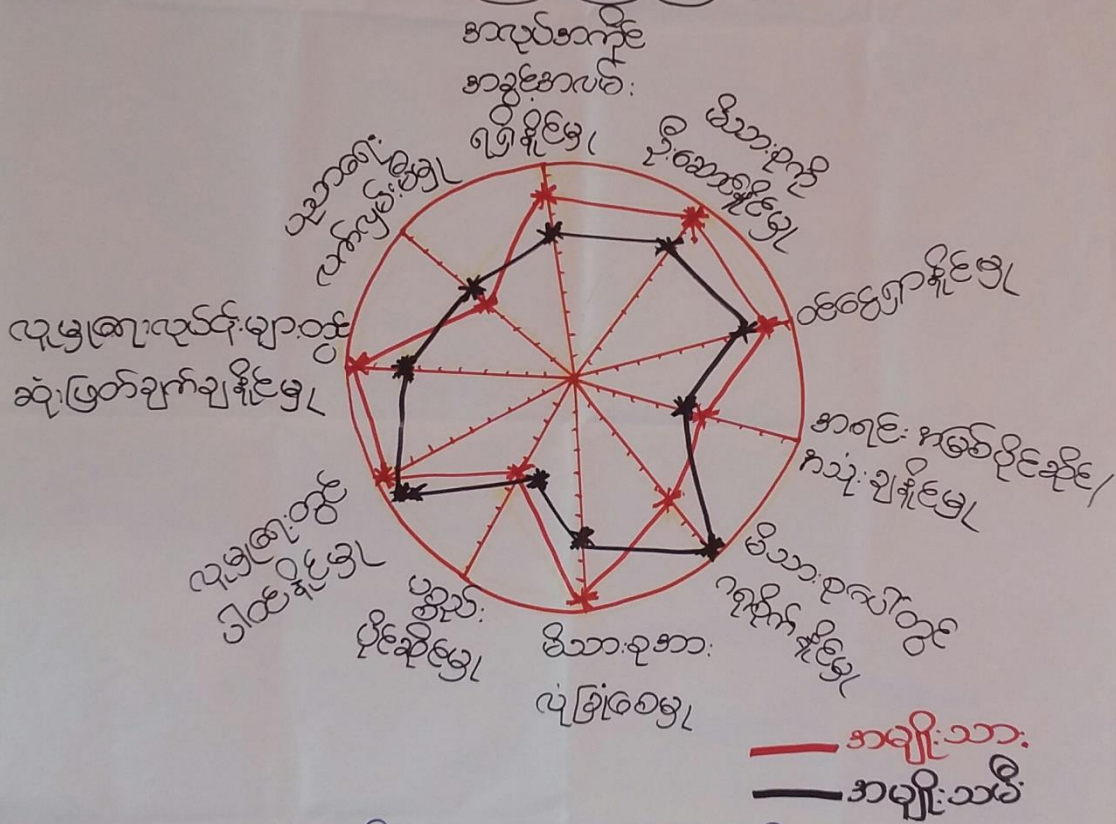 အလုပ်အကိုင်
အခွင့်အလမ်း
ရရှိနိုင်မှု
မိသားစုကို
ဦးဆောင်နိုင်မှု
ဝင်ငွေရှာနိုင်မှု
အရင်းအမြစ်ပိုင်ဆိုင်/
အသုံးချနိုင်မှု
မိသားစုပေါ်တွင်
ဂရုစိုက်နိုင်မှု
မိသားစုအား
လုံခြုံစေမှု
ပစ္စည်း
ပိုင်ဆိုင်မှု
လူမှုရေးတွင်
ပါဝင်နိုင်မှု
လူမှုရေးလုပ်ငန်းများတွင်
ဆုံးဖြတ်ချက်ချနိုင်မှု
ပညာရေး
လက်လှမ်းမီမှု
အမျိုးသား
အမျိုးသမီး